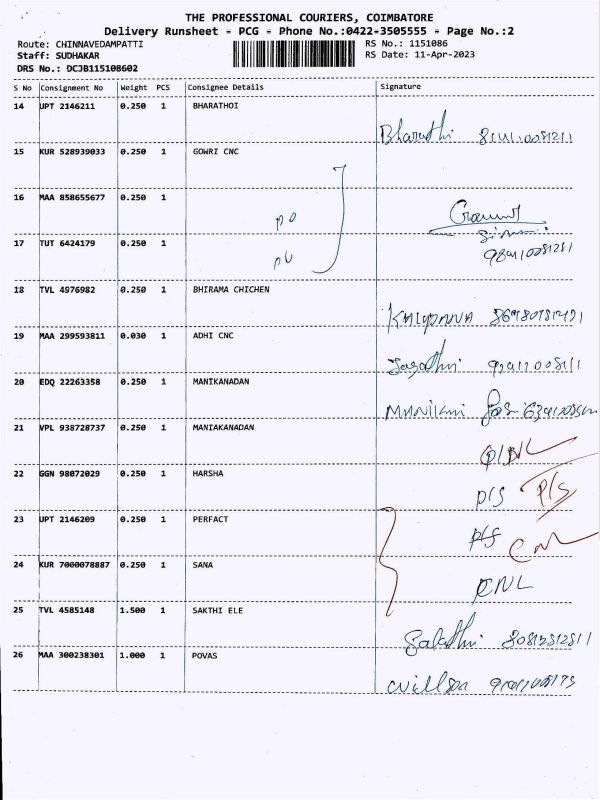 THE PROFESSIONAL COURIERS, COIMBATORE
Delivery Runsheet - PCG - Phone No.:0422-3505555 - Page No.:2
Route: CHINNAVEDAMPATTI RS No.: 1151086
Staff: SUDHAKAR RS Date: 11-Apr-2023
DRS No.: DCJB115108602
S No Consignment No Weight PCS Consignee Details Signature
14 UPT 2146211 0.250 1 BHARATHOI
Bharathi
15 KUR 528939033 0.250 1 GOWRI CNC
16 MAA 858655677 0.250 1
17 TUT 6424179 0.250 1
18 TVL 4976982 0.250 1 BHIRAMA CHICHEN
19 MAA 299593811 0.030 1 ADHI CNC
20 EDQ 22263358 0.250 1 MANIKANADAN
21 VPL 938728737 0.250 1 MANIAKANADAN
22 GGN 98072029 0.250 1 HARSHA
P/S P/S
23 UPT 2146209 0.250 1 PERFACT
24 KUR 7000078887 0.250 1 SANA
25 TVL 4585148 1.500 1 SAKTHI ELE
26 MAA 300238301 1.000 1 POVAS